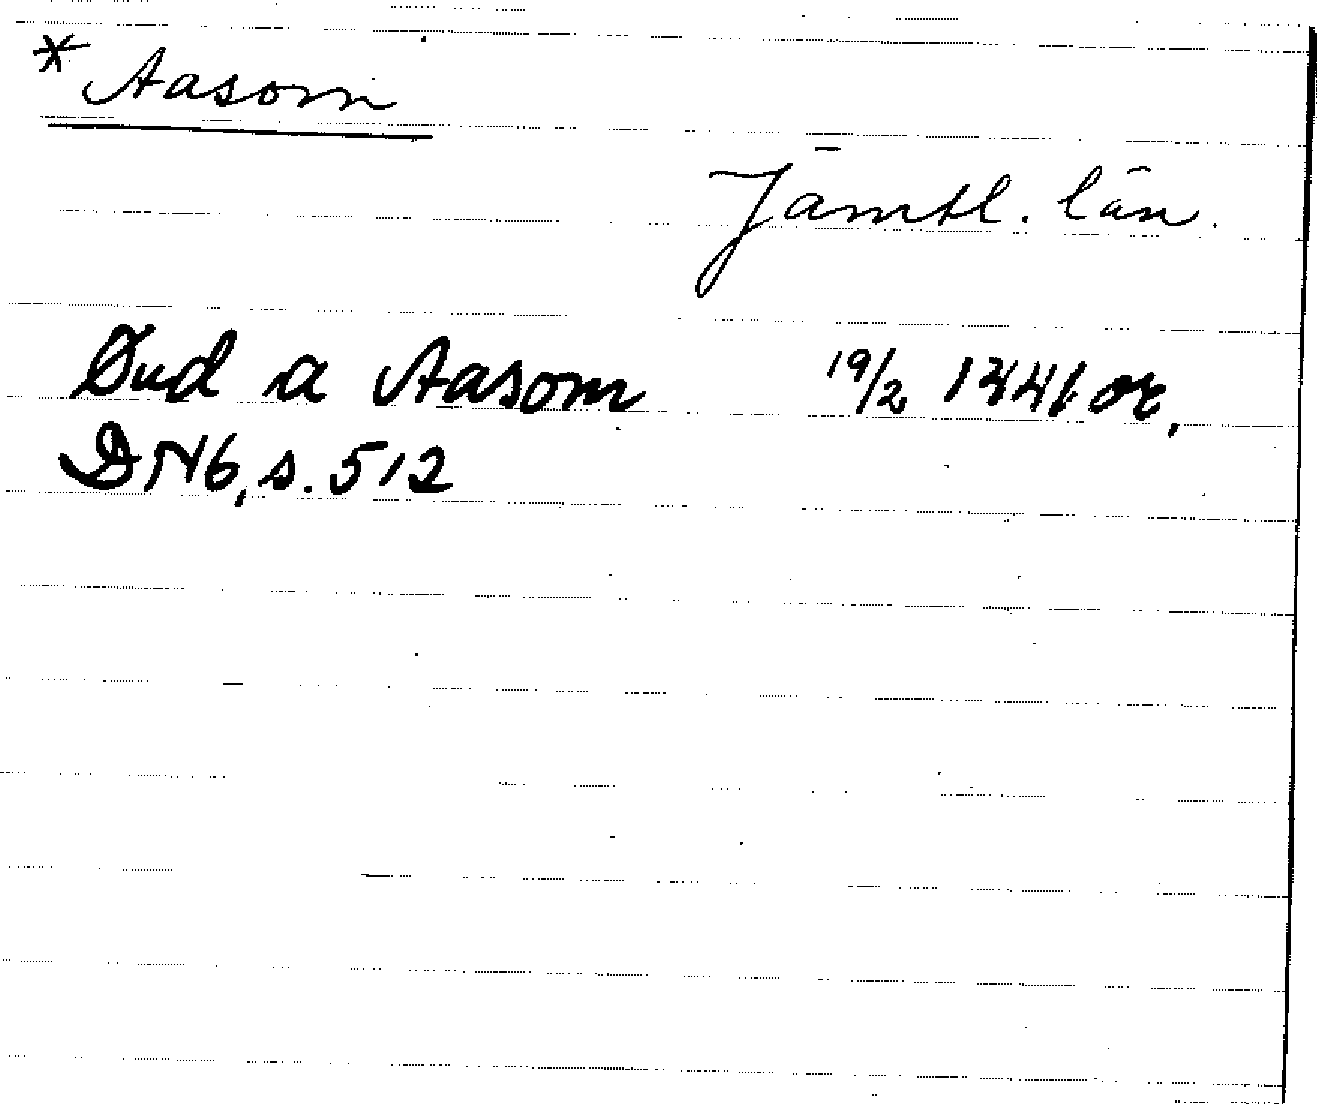 * Aasom
Jämtl. län.
Øud a Aasom 19/2 1441 or,
DN6, s. 512